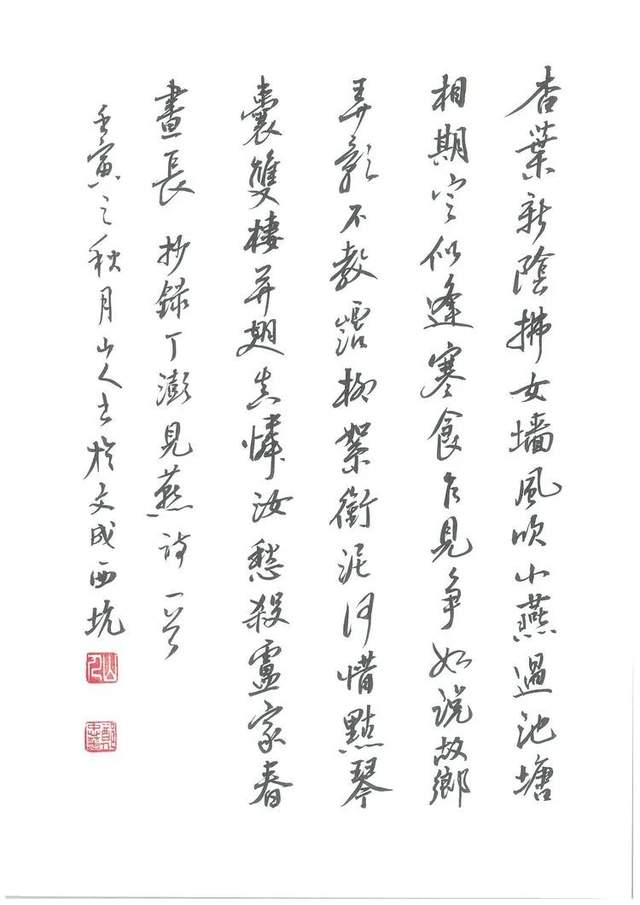 杏葉新陰拂女墻風吹小燕過池塘
相期定似逢寒食乍見爭如說故鄉
弄影不教霑柳絮銜泥何惜點琴
囊雙棲并翅真憐汝愁殺盧家春
晝長 抄錄丁澎見燕詩一首
壬寅之秋月山人書於文成西坑
山人